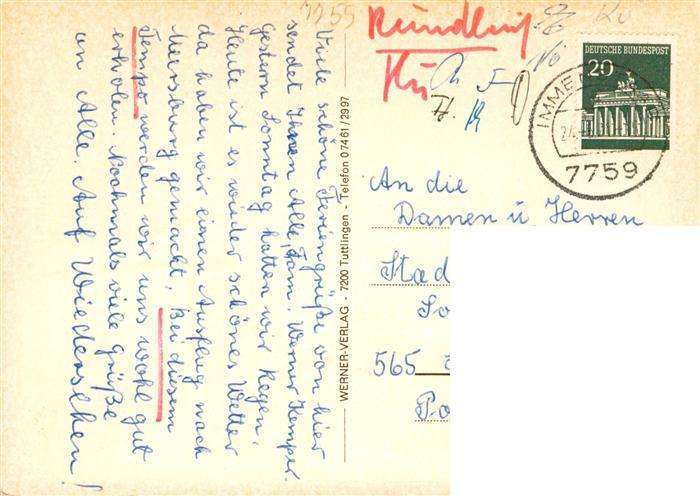 7755
Rundling
Ku
Viele schöne Feriengrüße von hier
sendet Ihnen Alle, Fam. Werner Kemper.
Gestern Sonntag hatten wir Regen,
Heute ist es wieder schönes Wetter
da haben wir einen Ausflug nach
Meersburg gemacht. Bei diesem
Tempo werden wir uns wohl gut
erholen. Nochmals viele Grüße
an Alle. Auf Wiedersehen!
WERNER-VERLAG - 7200 Tuttlingen - Telefon 07461/2997
DEUTSCHE BUNDESPOST
20
IMME
7759
An die
Damen u Herren
Stad
So
565
Po